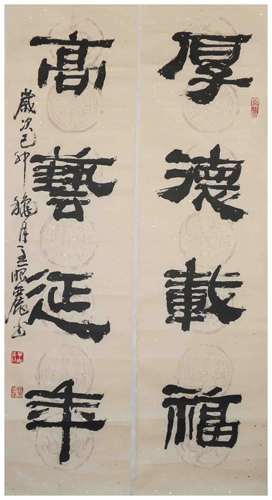 厚德載福
高藝延年
歲次己卯